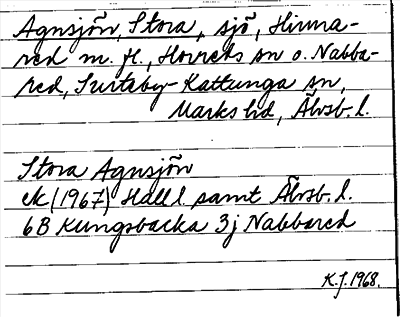 Agnsjön, Stora, sjö, Hinna-
red m. fl., Horreds sn o. Nabba-
red, Surteby-Kattunga sn,
Marks hd, Älvsb. l.
Stora Agnsjön
ek (1967) Hall l samt Älvsb. l.
6B Kungsbacka 3j Nabbared
K.J. 1968.